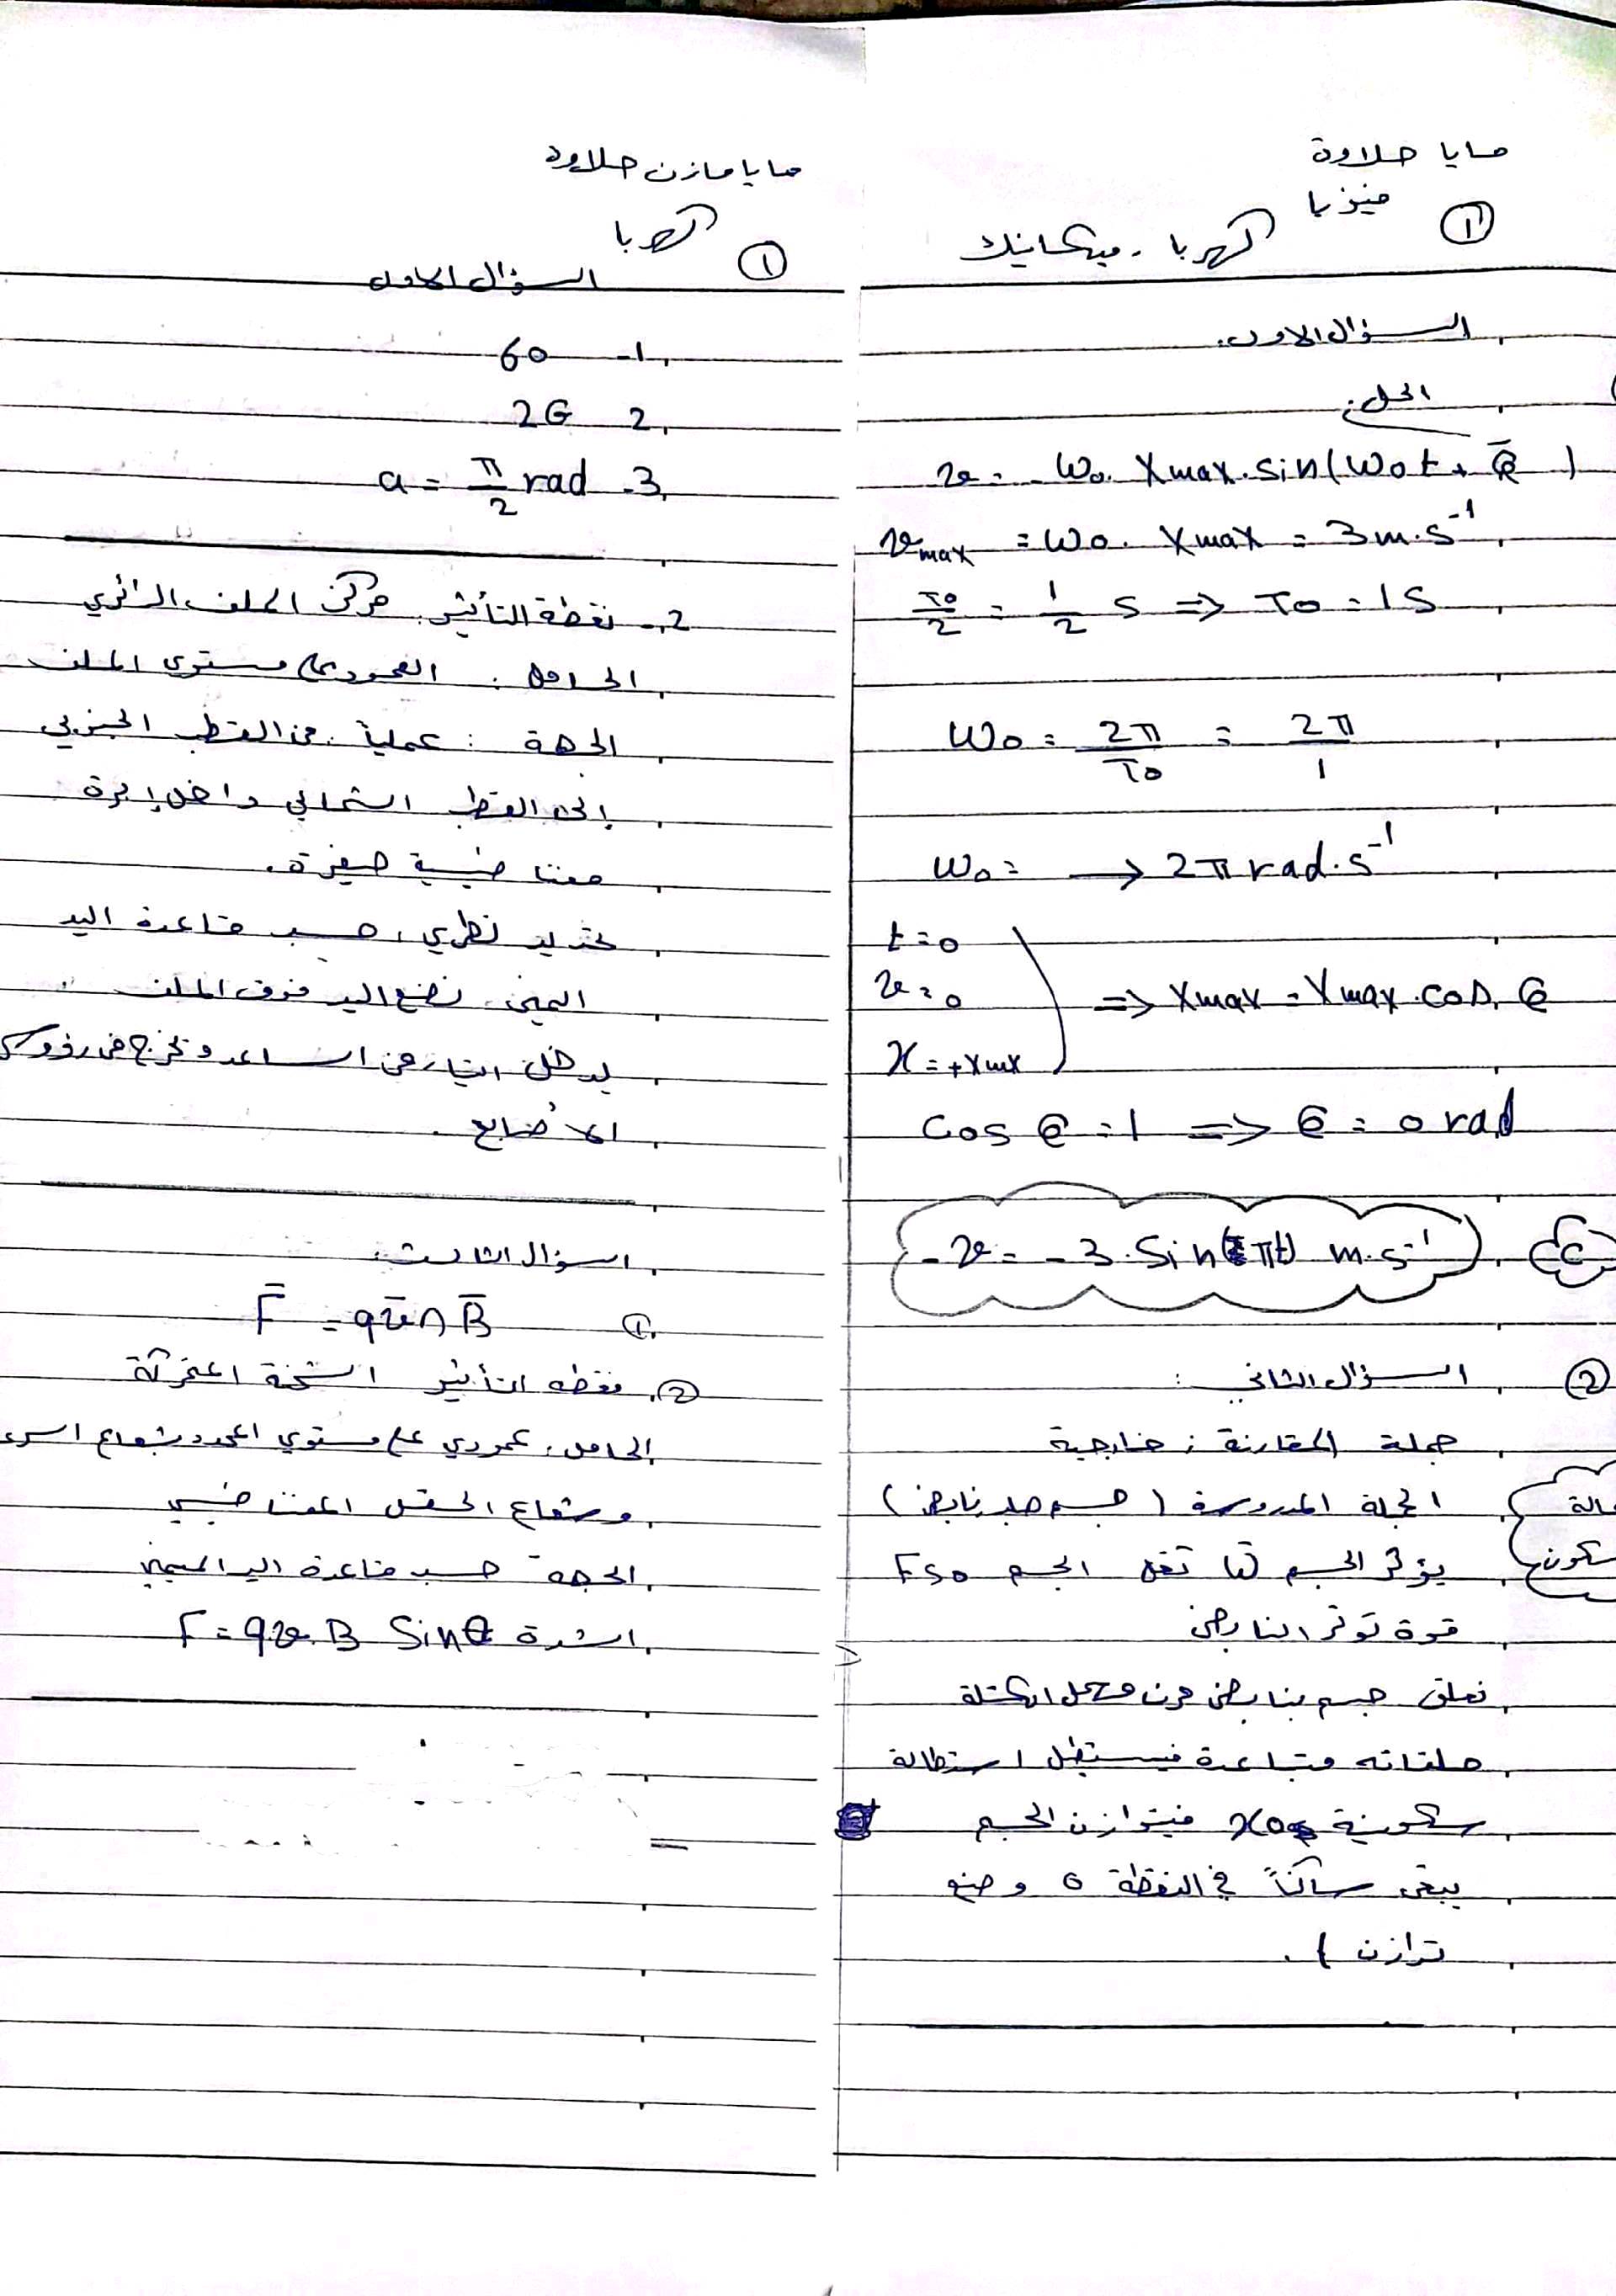 مايا حلاوة
فيزيا
① كهربا - ميكانيك
السؤال الاول.
الحل:
v = - ω0. Xmax. sin(ω0t + φ̄)
vmax = ω0. Xmax = 3 m.s⁻¹
T0/2 = 1/2 s ⇒ T0 = 1s
ω0 = 2π/T0 = 2π/1
ω0 = → 2π rad.s⁻¹
t = 0
v = 0 ⇒ Xmax = Xmax.cos. φ
x = +Xmax
cos φ = 1 ⇒ φ = 0 rad
C - v = - 3. Sin( πt) m.s⁻¹
② السؤال الثاني:
جملة المقارنة: خارجية
الجملة المدروسة (جسم صلب نابض)
يؤثر الجسم ثقل الجسم Fs0
سكون
قوة توتر النابض
نعلق جسم بنابض مرن مهمل الكتلة
حلقاته متباعدة فيستطيل استطالة
سكونية x0 فيتوازن الجسم
يبقى ساكناً في النقطة o وضع
توازن ).
مايا مازن حلاوة
① كهربا
السؤال الاول
1- 60
2 2G
3- a = π/2 rad
2- نقطة التأثير: مركز الملف الدائري
الحامل: العمودي على مستوى الملف
الجهة: عملياً: من القطب الجنوبي
إلى القطب الشمالي داخل إبرة
مغناطيسية صغيرة.
تحديد نظري: حسب قاعدة اليد
اليمنى. نضع اليد فوق الملف
يدخل التيار من الساعد و يخرج من رؤوس
الأصابع.
السؤال الثالث:
① F̄ = qv̄ ∩ B̄
② نقطة التأثير الشحنة المتحركة
الحامل: عمودي على مستوي المحدد بشعاع السرعة
وشعاع الحقل المغناطيسي
الجهة حسب قاعدة اليد اليمنى
الشدة F = qv.B Sinθ